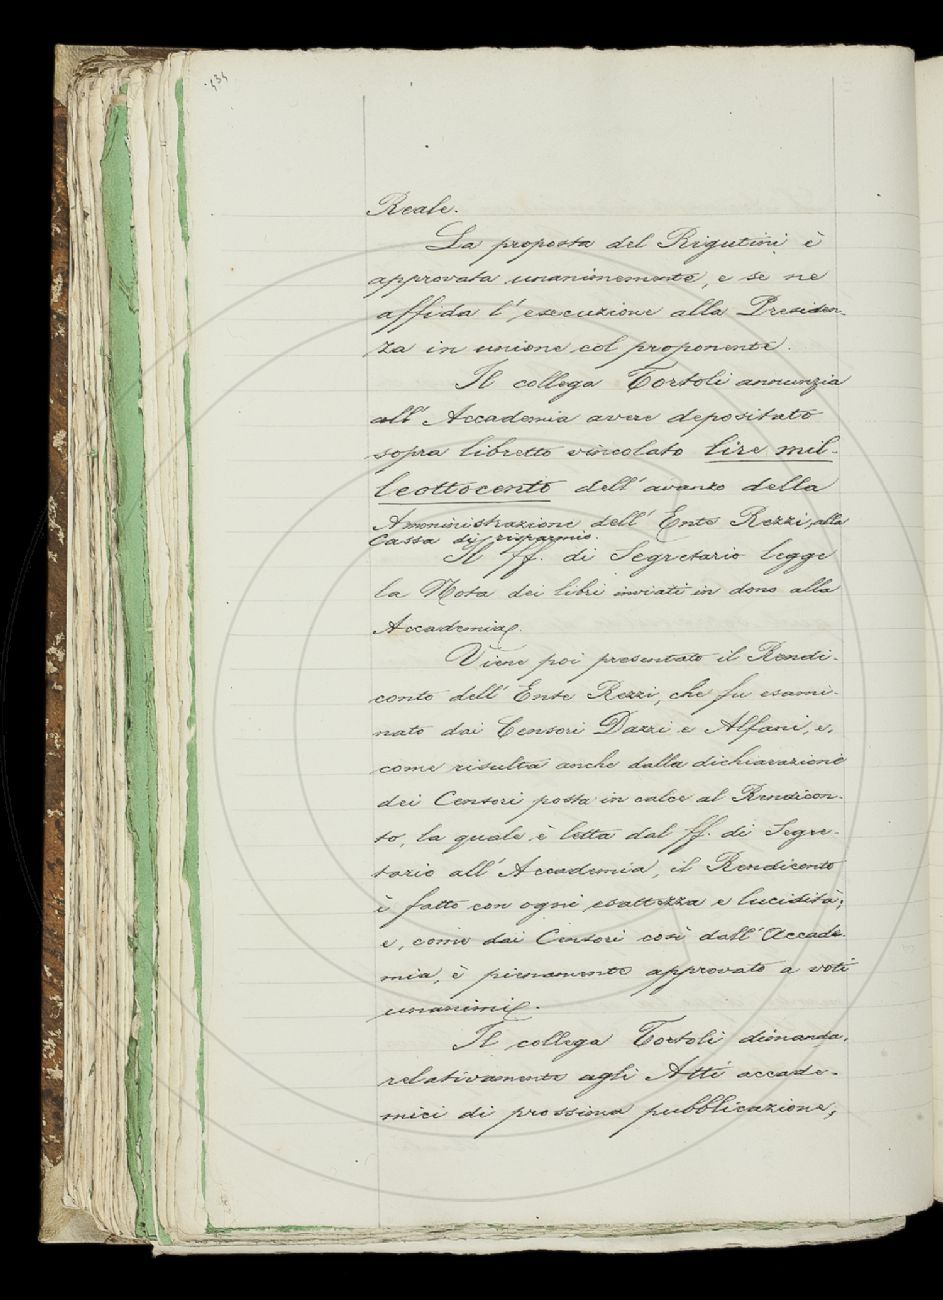 434
Reale.
La proposta del Rigutini è
approvata unanimemente, e se ne
affida l'esecuzione alla Presiden-
za in unione col proponente.
Il collega Tortoli annunzia
all'Accademia avere depositato
sopra libretto vincolato lire mil-
leottocento dell'avanzo della
Amministrazione dell'Ente Rezzi, alla
Cassa di risparmio.
Il ff. di Segretario legge
la Nota dei libri inviati in dono alla
Accademia.
Viene poi presentato il Rendi-
conto dell'Ente Rezzi, che fu esami-
nato dai Censori Dazzi e Alfani, e,
come risulta anche dalla dichiarazione
dei Censori posta in calce al Rendicon-
to, la quale è letta dal ff. di Segre-
tario all'Accademia, il Rendiconto
è fatto con ogni esattezza e lucidità;
e, come dai Censori così dall'Accade-
mia, è pienamente approvato a voti
unanimi.
Il collega Tortoli dimanda,
relativamente agli Atti accade-
mici di prossima pubblicazione,